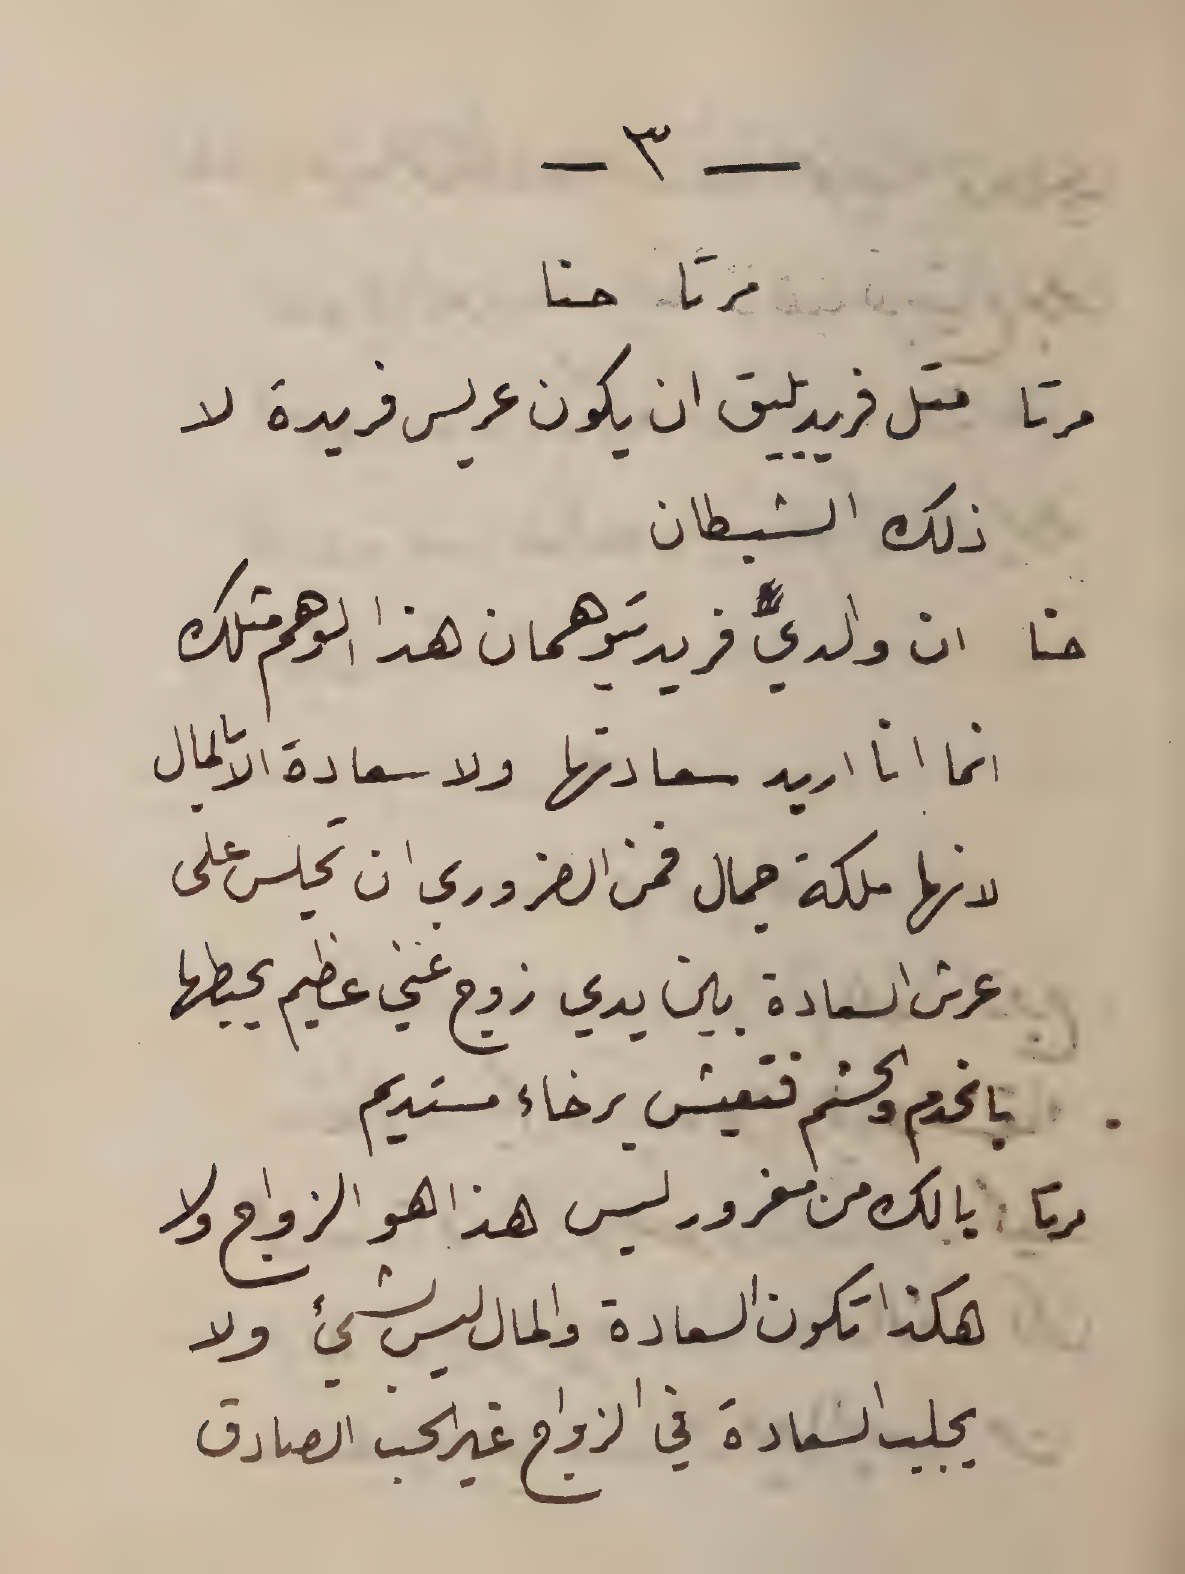 — ٣ —
مرتا حنا
مرتا مثل فريد يليق ان يكون عريس فريدة لا
ذلك الشيطان
حنا ان والديّ فريد يتوهمان هذا الوهم مثلك
انما انا اريد سعادتها ولا سعادة الا بالمال
لانها ملكة جمال فمن الضروري ان تجلس على
عرش السعادة بين يدي زوج غني عظيم يحيطها
بالخدم والحشم فتعيش برخاء مستديم
مرتا يا لك من مغرور ليس هذا هو الزواج ولا
هكذا تكون السعادة والمال ليس بشيئ ولا
يجلب السعادة في الزواج غير الحب الصادق